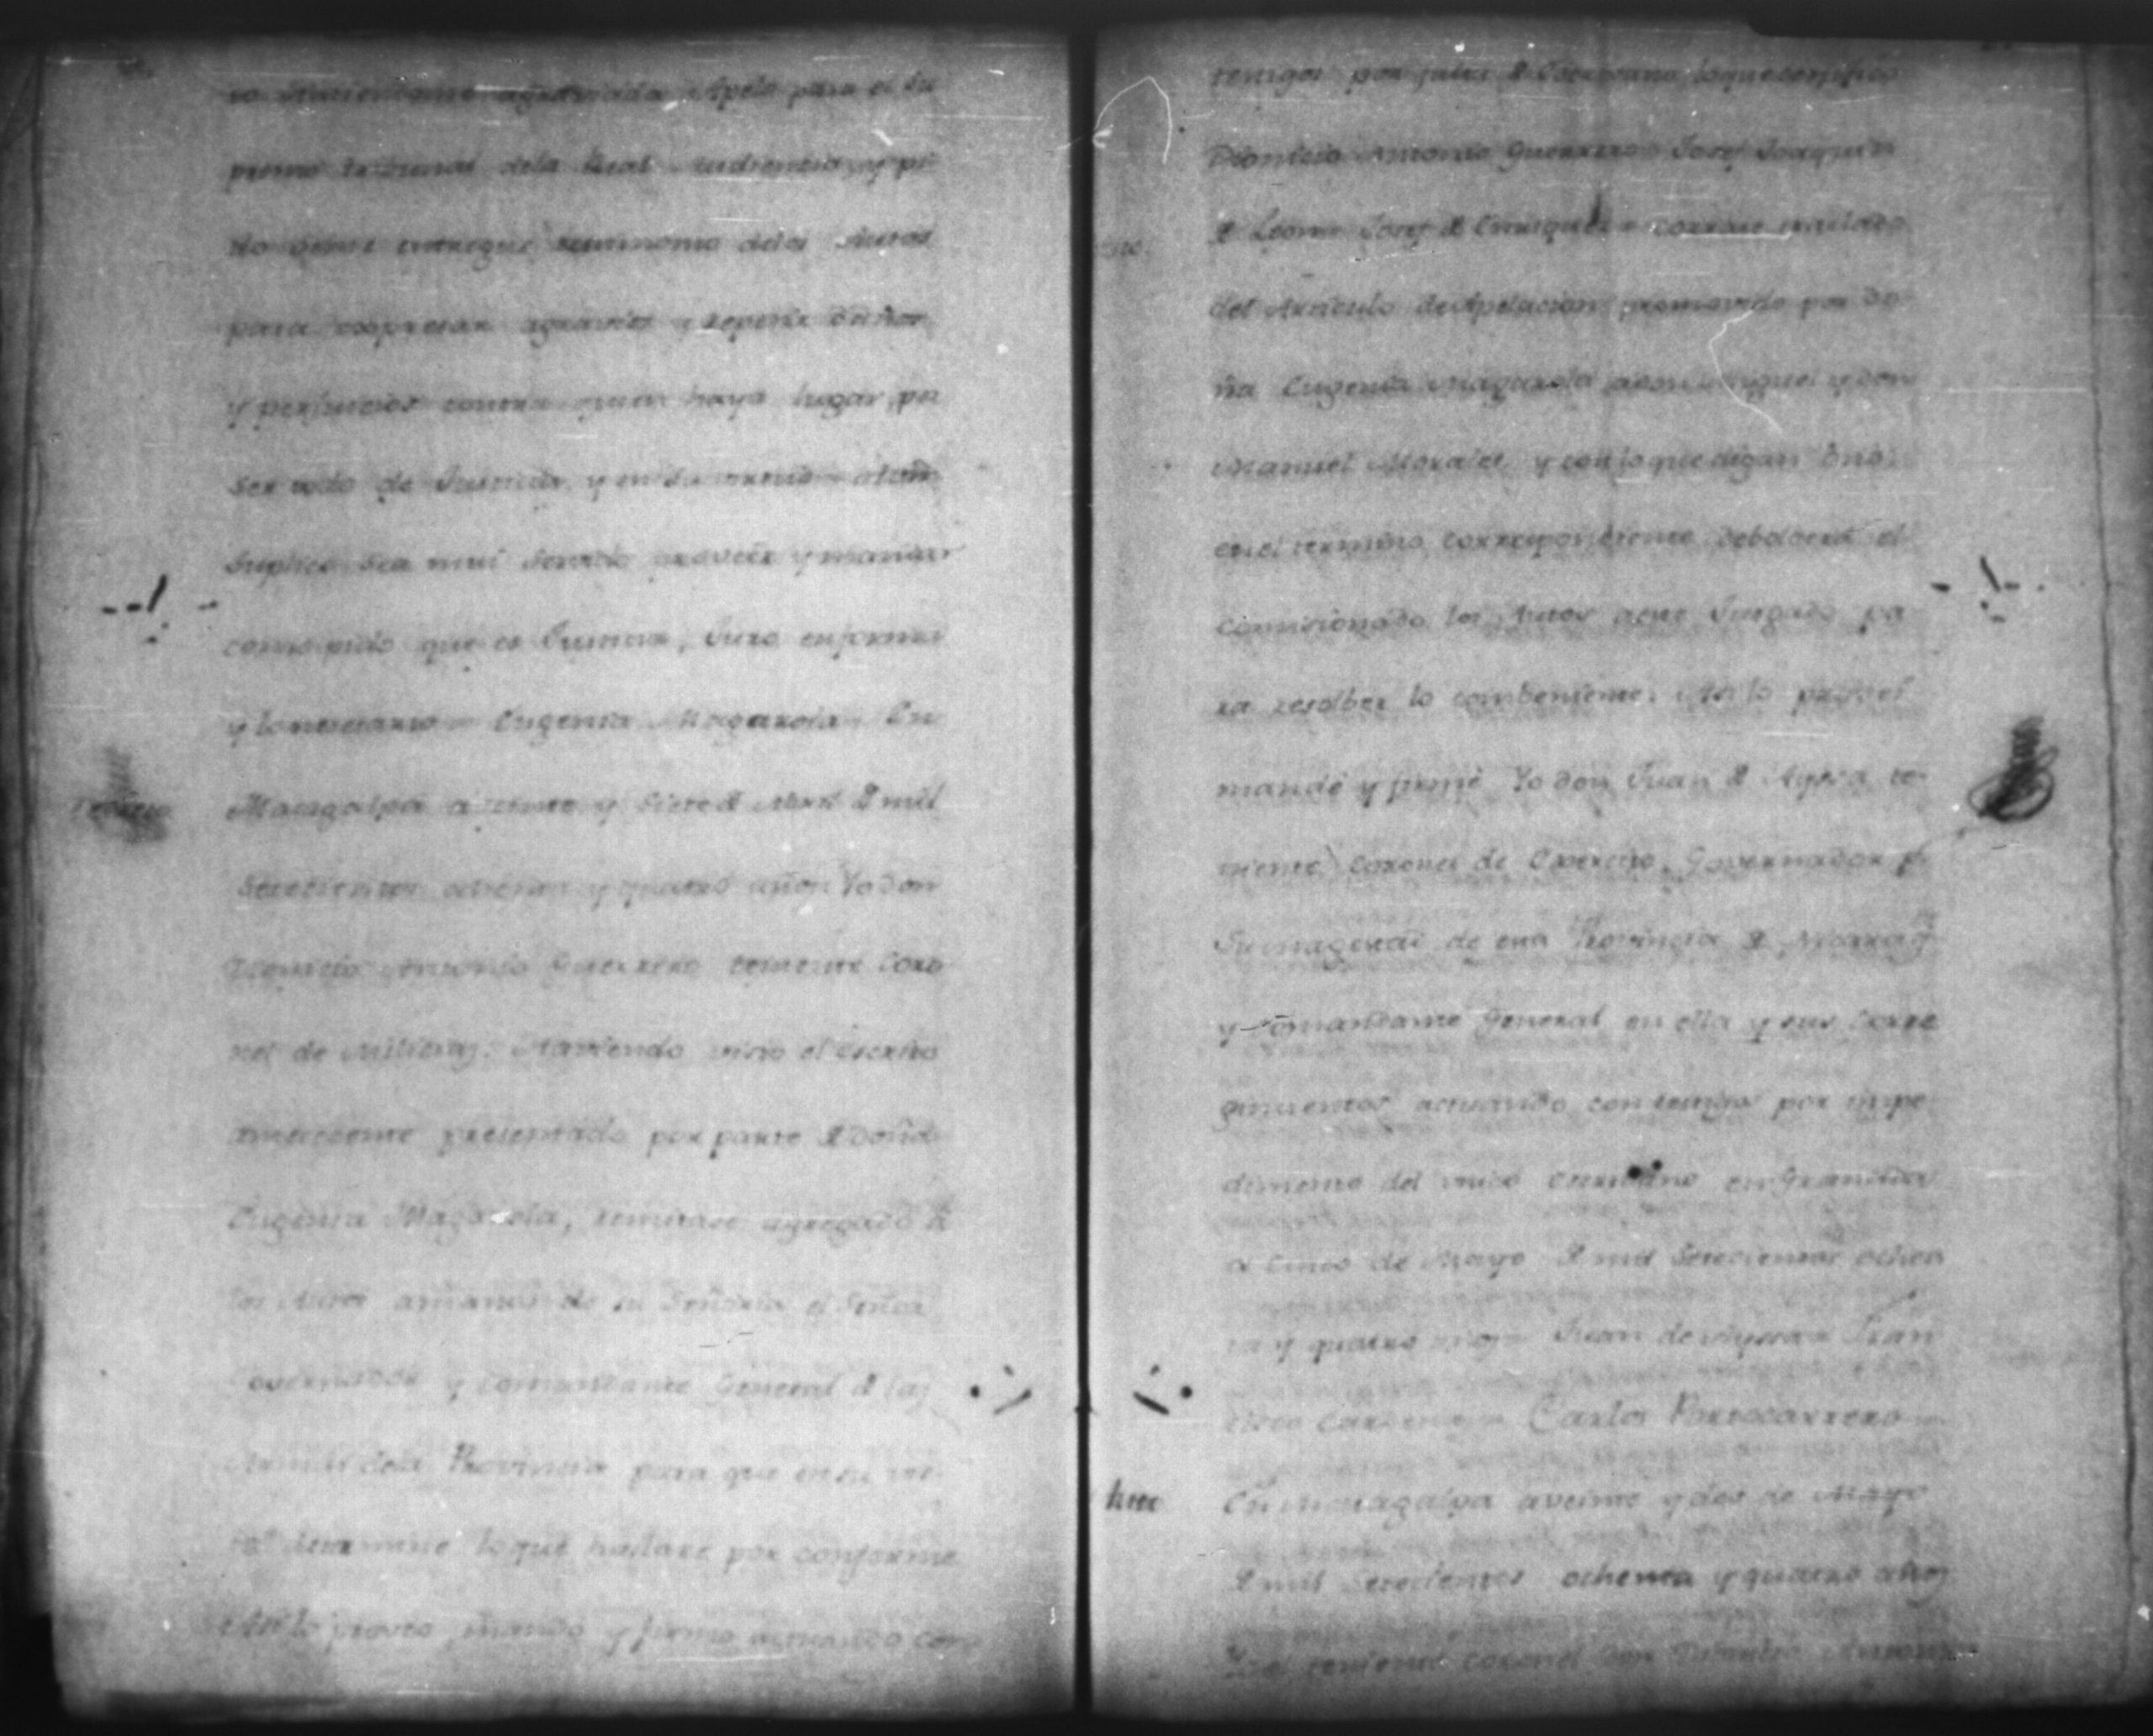 agraviada Apelo para el Su
premo tribunal dela Real Audiencia, y pi
do seme entregue testimonio delos Autos
para expresar agravios y repetir daños
y perjuicios contra quien haya lugar, por
ser todo de Justicia, y en su
Suplico sea mui servido proveer y mandar
como pido que es Justicia, Juro en forma
y lo necesario = Eugenia Magarola = En
Matagalpa a veinte y siete de Abril de mil
setecientos ochenta y quatro años Yo don
Dionicio Antonio Guerrero teniente Coro
nel de Milicias. Haviendo visto el escrito
antecedente presentado por parte de Doña
Eugenia Magarola, remitase agregado a
los Autos a manos de su Señoria el Señor
Governador y Comandante General de las
Armas dela Provincia para que en su
determine lo que hallare por conforme
Asi lo proveo, mando y firmo actuando con
testigos por falta de Escrivano lo que certifico
Dionicio Antonio Guerrero = Josef Joaquin
de Leon = Josef de Enriquez = Corrase traslado
del Articulo de Apelacion promovido por Do
ña Eugenia Magarola a don Miguel y don
Manuel Morales, y con lo que digan ò no,
en el termino correspondiente debolverá el
Comisionado los Autos a este Juzgado pa
ra resolber lo combeniente. Asi lo proveí
mandé y firmé Yo don Juan de Ayssa te-
niente Coronel de Exercito, Governador pr.
Su magestad de esta Provincia de
y Comandante General en ella y sus Corre
gimientos actuando con testigos por impe
dimento del unico Escrivano en Granada
a cinco de Mayo de mil setecientos ochen
ta y quatro años = Juan de Ayssa = Fran
cisco Cardenas = Carlos Portocarrero =
En Matagalpa a veinte y dos de Mayo
de mil setecientos ochenta y quatro años
Yo el teniente coronel don Dionicio Antonio